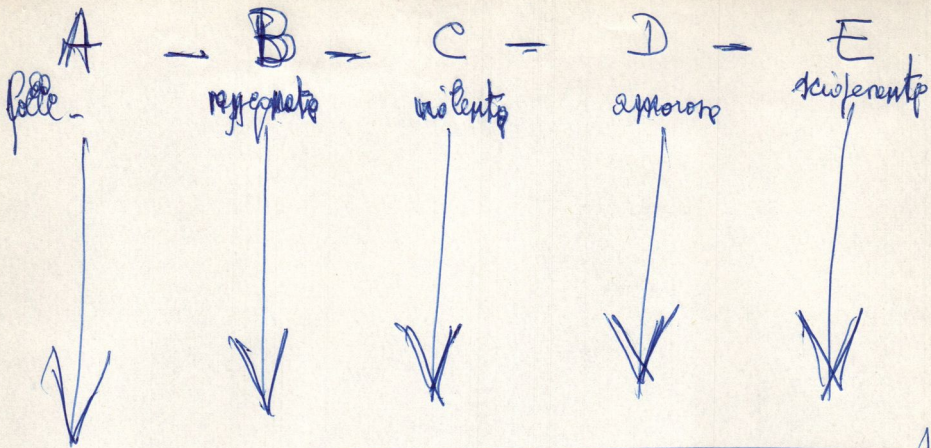 A - B - C - D - E
folle - rassegnata violenta amorosa scioperante